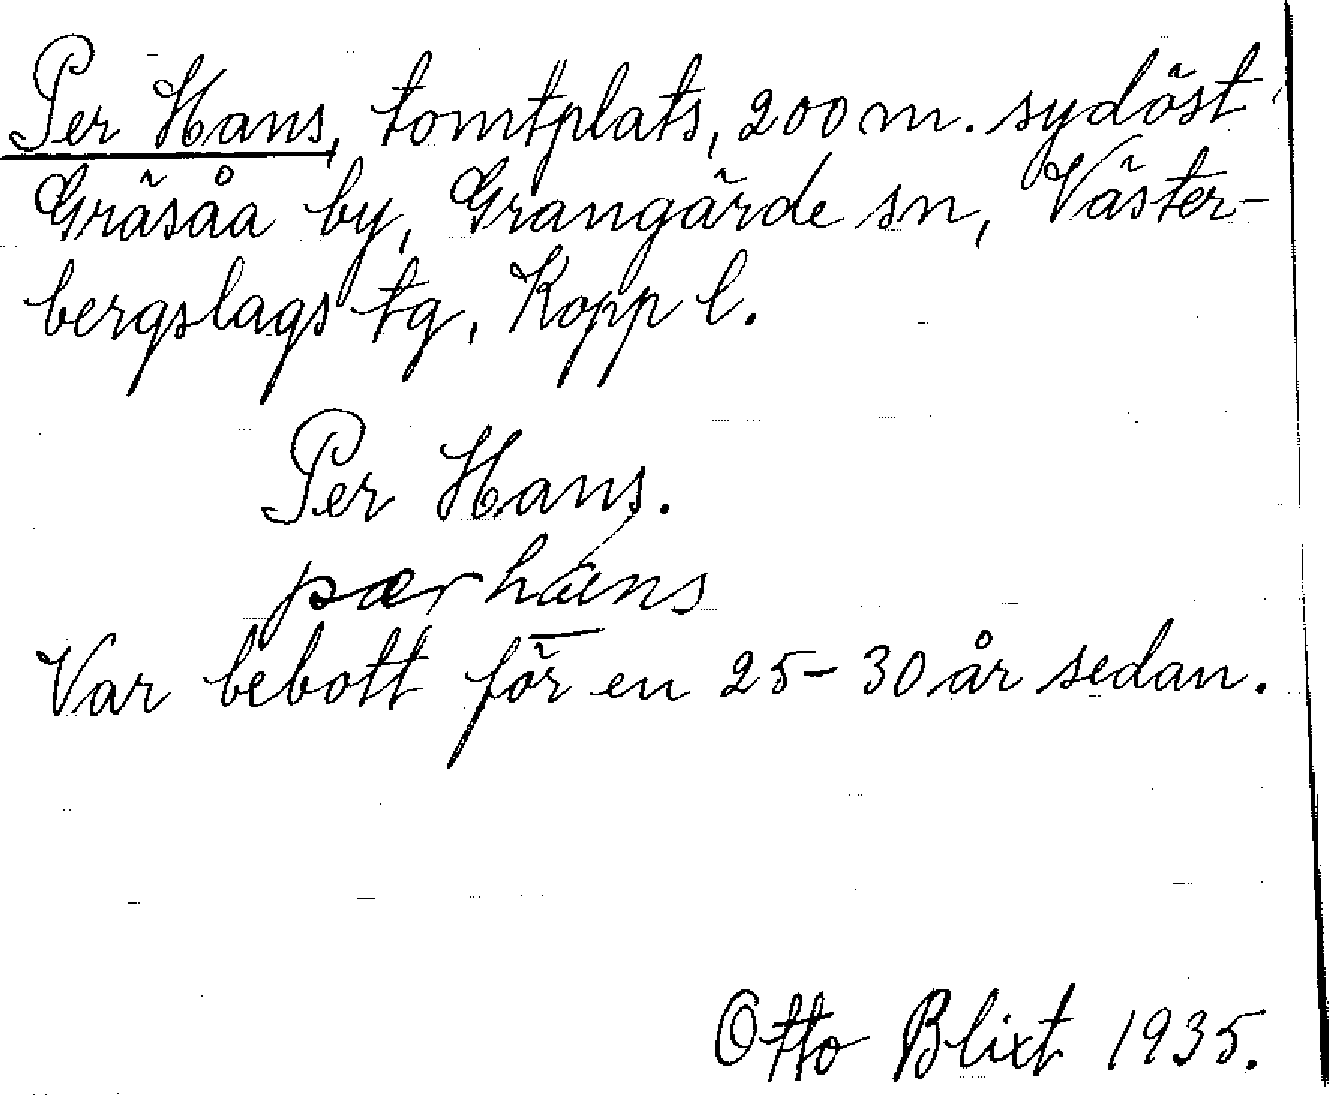 Per Hans, tomtplats, 200 m. sydöst
Gräsåa by, Grangärde sn, Väster-
bergslags tg, Kopp l.
Per Hans.
pær háns
Var bebott för en 25-30 år sedan.
Otto Blixt 1935.